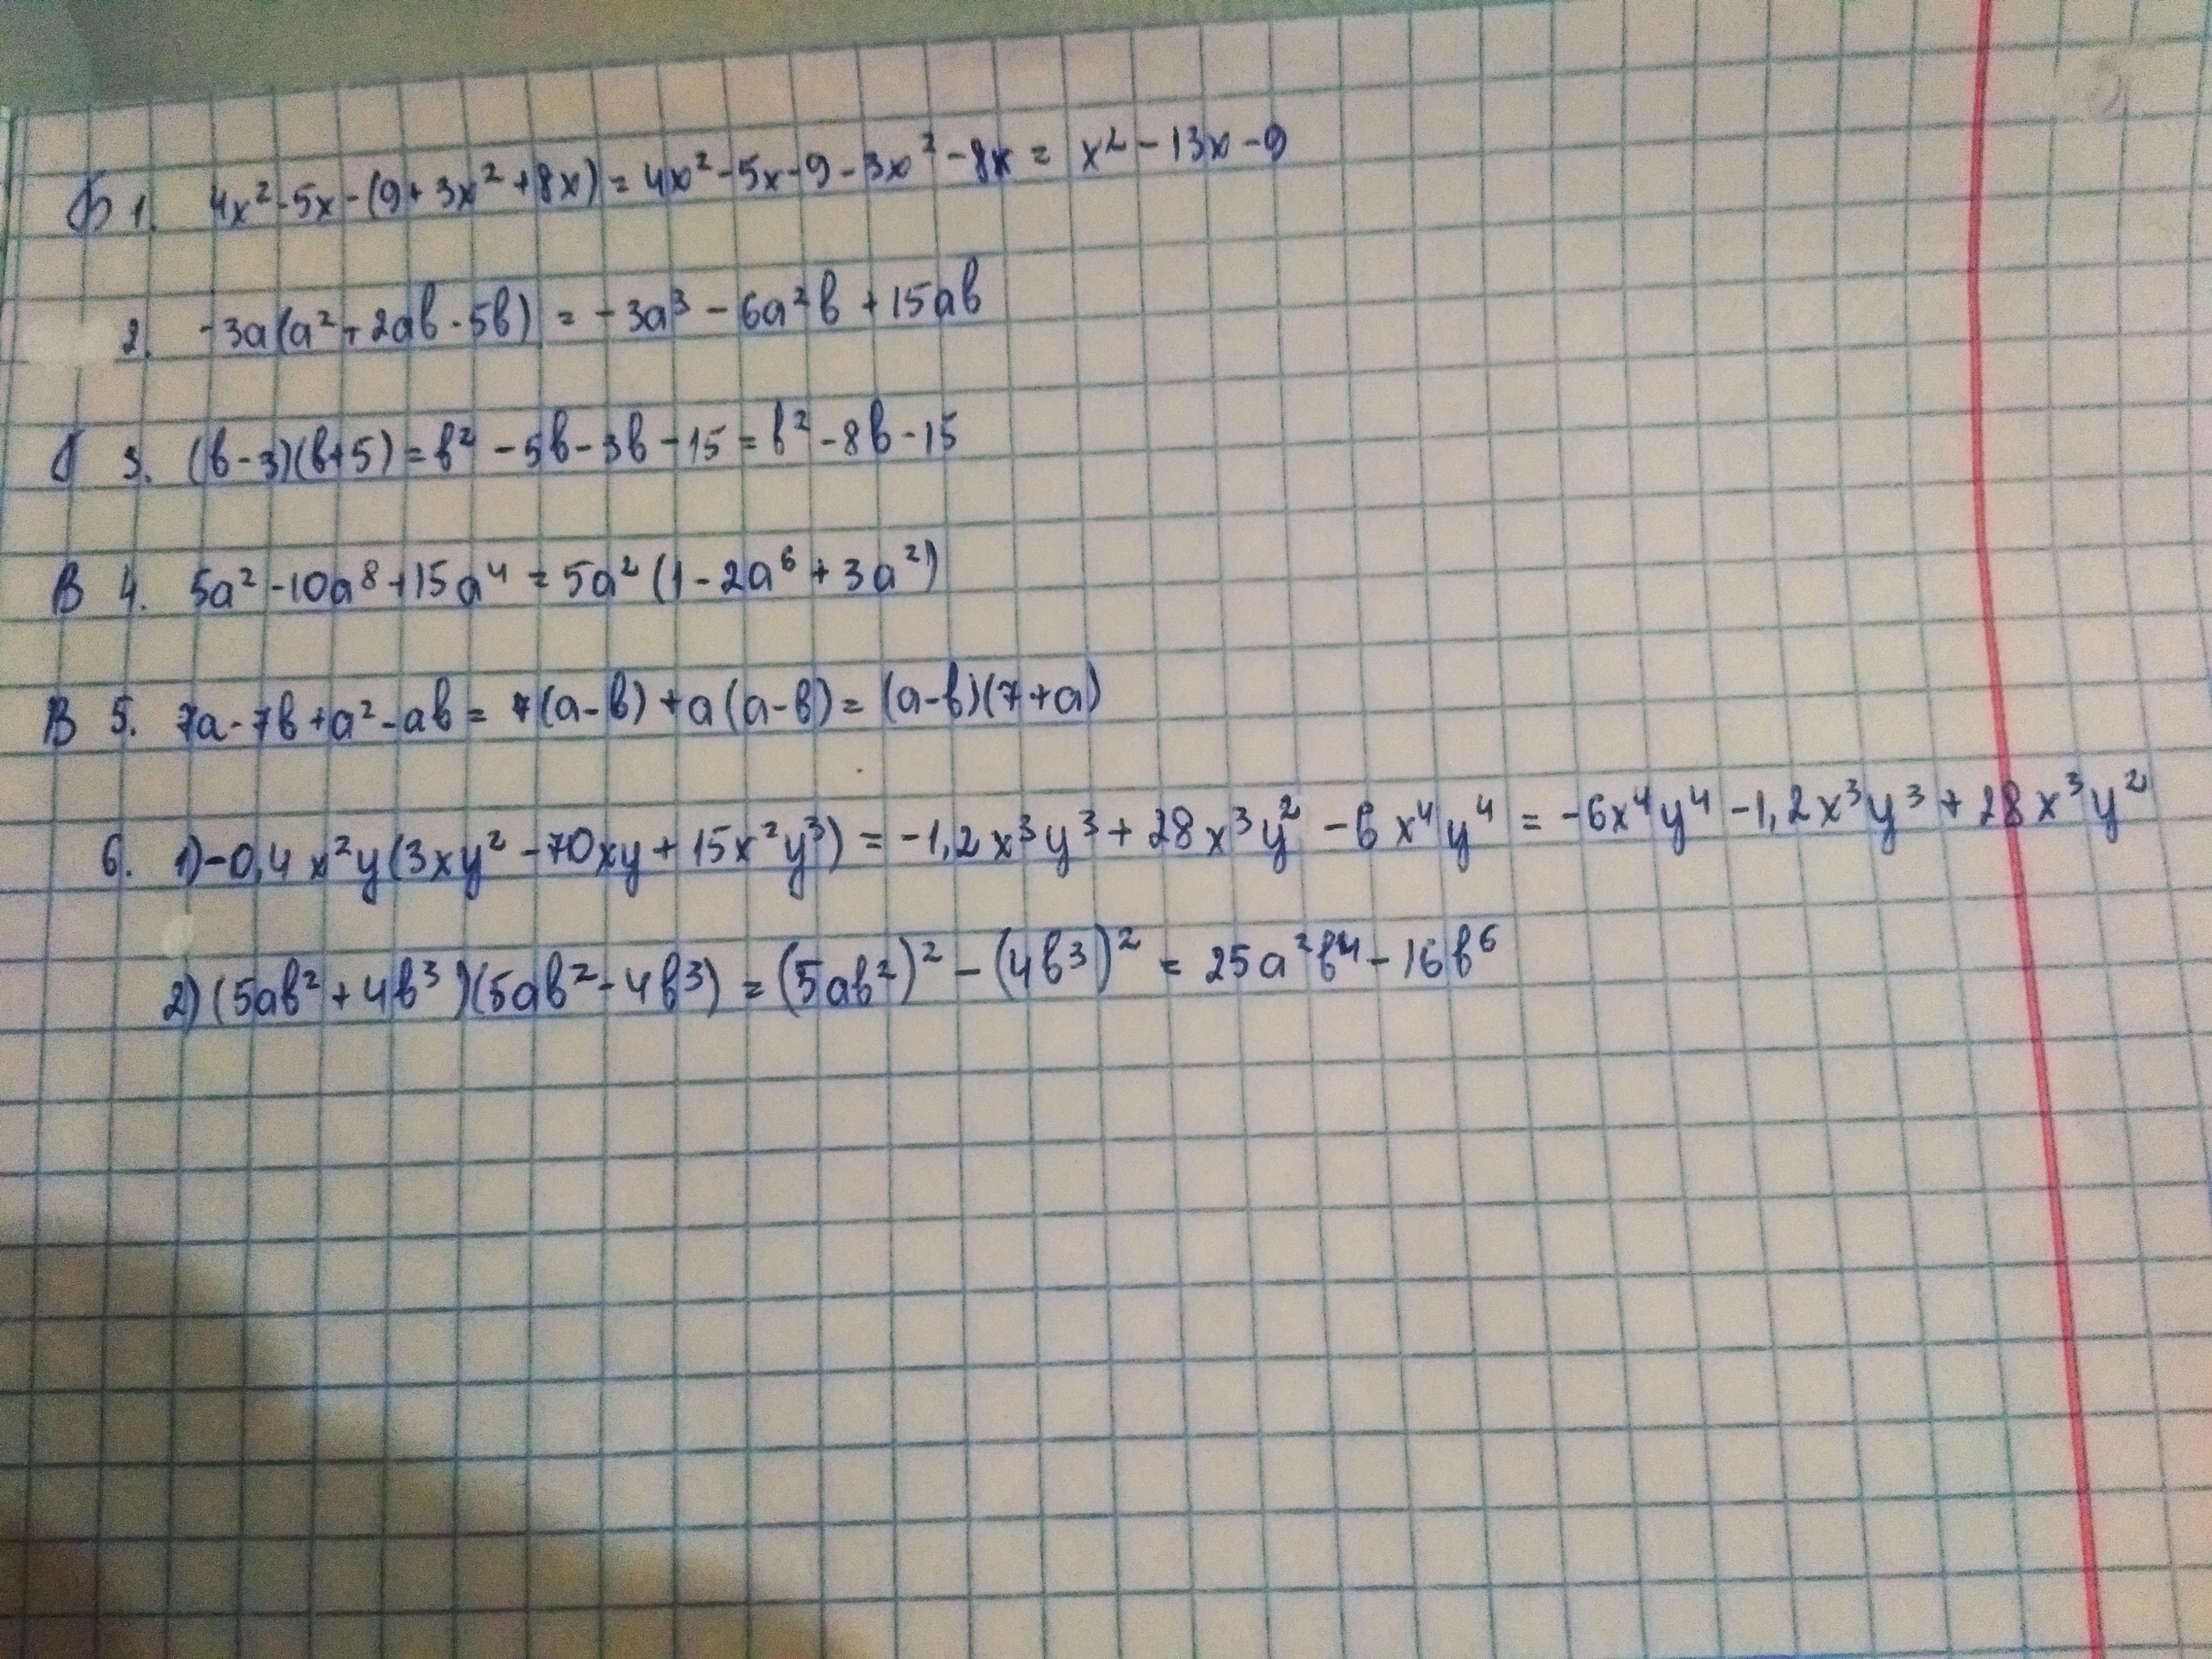 Б 1. 4x² - 5x - (9 + 3x² + 8x) = 4x² - 5x - 9 - 3x² - 8x = x² - 13x - 9
2. -3a(a² + 2ab - 5b) = -3a³ - 6a²b + 15ab
3. (b - 3)(b + 5) = b² - 5b - 3b - 15 = b² - 8b - 15
В 4. 5a² - 10a⁸ + 15a⁴ = 5a² (1 - 2a⁶ + 3a²)
В 5. 7a - 7b + a² - ab = 7(a - b) + a(a - b) = (a - b)(7 + a)
6. 1) -0,4x²y(3xy² - 70xy + 15x²y³) = -1,2x³y³ + 28x³y² - 6x⁴y⁴ = -6x⁴y⁴ - 1,2x³y³ + 28x³y²
2) (5ab² + 4b³)(5ab² - 4b³) = (5ab²)² - (4b³)² = 25a²b⁴ - 16b⁶